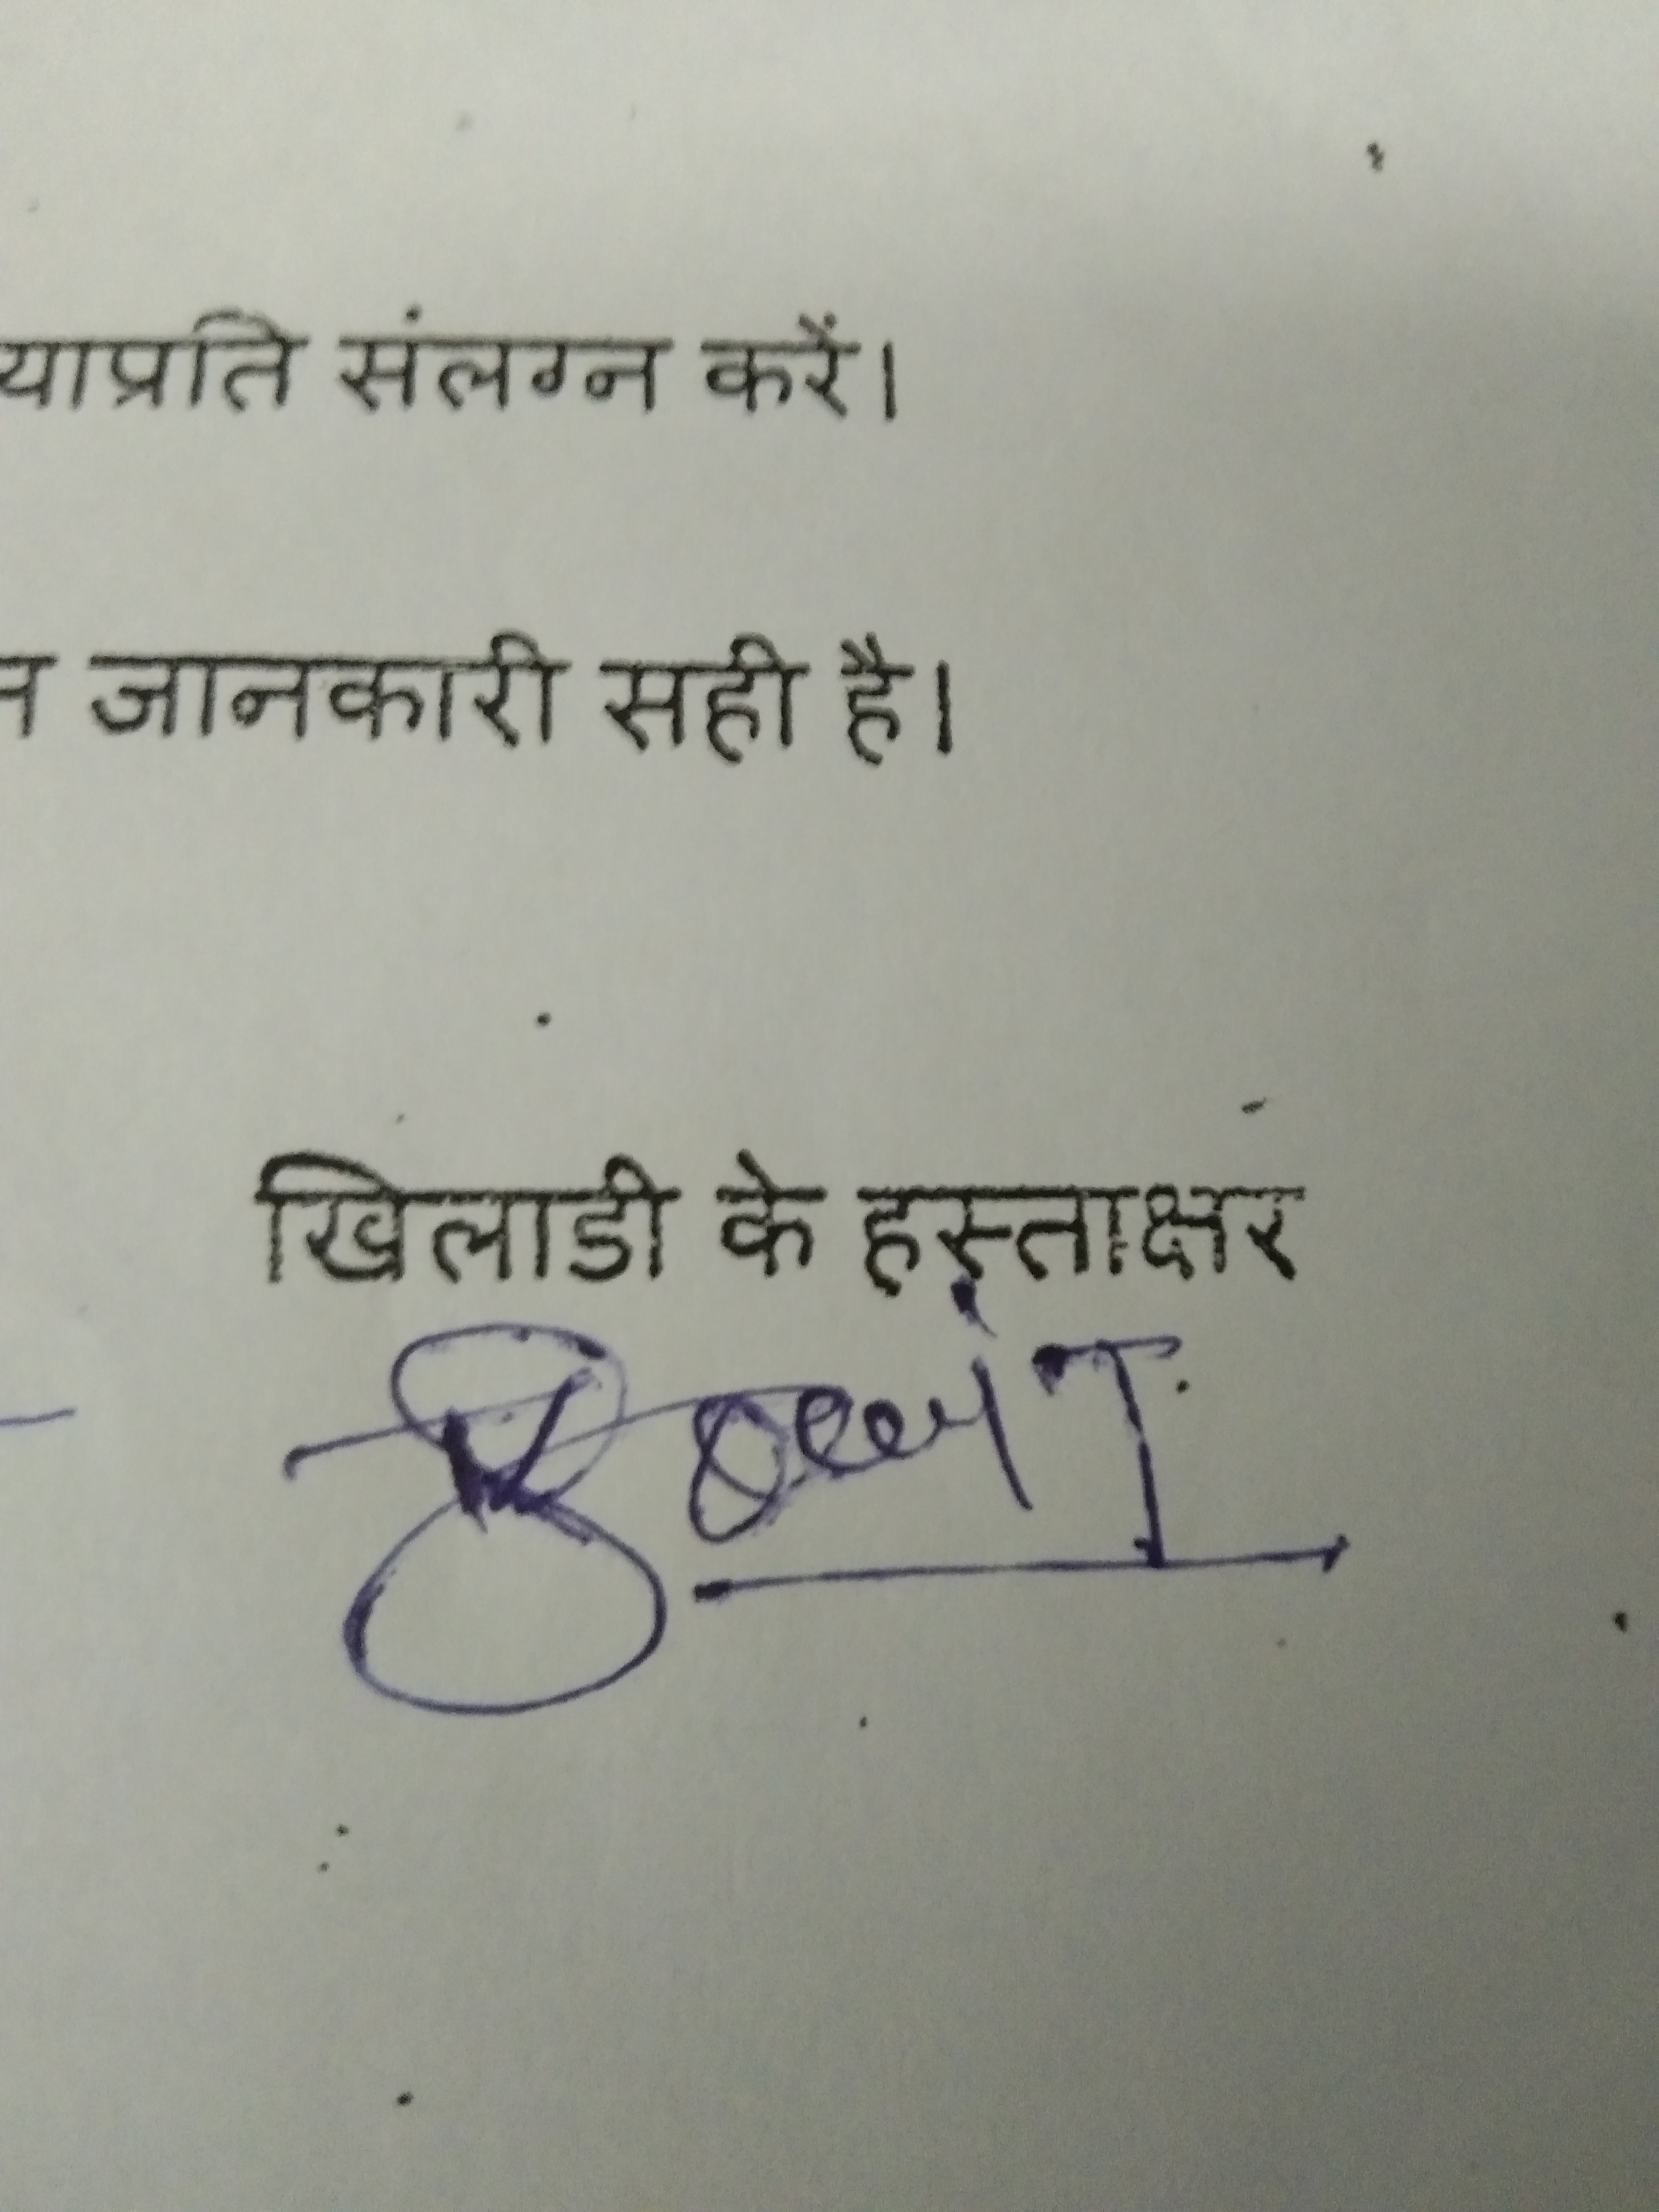 याप्रति संलग्न करें।
न जानकारी सही है।
खिलाडी के हस्ताक्षर